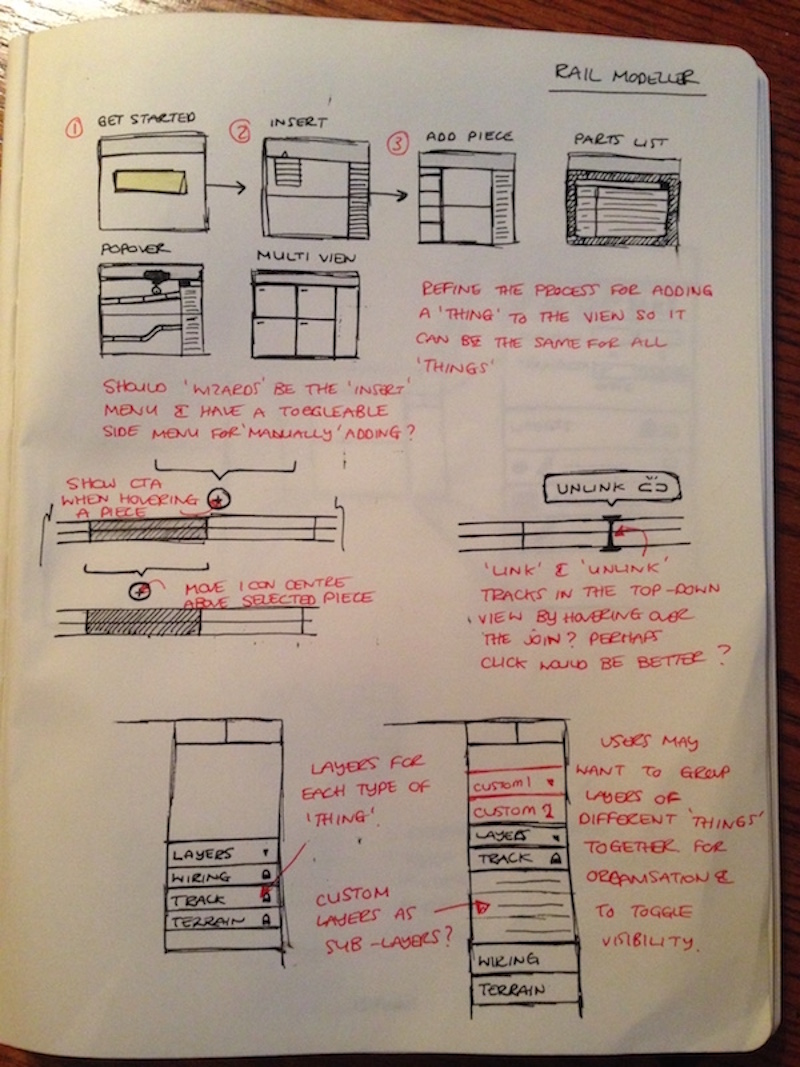 RAIL MODELLER
1 GET STARTED
2 INSERT
3 ADD PIECE
PARTS LIST
POPOVER
MULTI VIEW
REFINE THE PROCESS FOR ADDING
A 'THING' TO THE VIEW SO IT
CAN BE THE SAME FOR ALL
'THINGS'
SHOULD 'WIZARDS' BE THE 'INSERT'
MENU & HAVE A TOGGLEABLE
SIDE MENU FOR 'MANUALLY' ADDING?
SHOW CTA
WHEN HOVERING
A PIECE
+
MOVE ICON CENTRE
ABOVE SELECTED PIECE
+
UNLINK
'LINK' & 'UNLINK'
TRACKS IN THE TOP-DOWN
VIEW BY HOVERING OVER
THE JOIN? PERHAPS
CLICK WOULD BE BETTER?
LAYERS
WIRING
TRACK
TERRAIN
LAYERS FOR
EACH TYPE OF
'THING'.
CUSTOM
LAYERS AS
SUB-LAYERS?
CUSTOM 1
CUSTOM 2
LAYERS
TRACK
WIRING
TERRAIN
USERS MAY
WANT TO GROUP
LAYERS OF
DIFFERENT 'THINGS'
TOGETHER FOR
ORGANISATION &
TO TOGGLE
VISIBILITY.